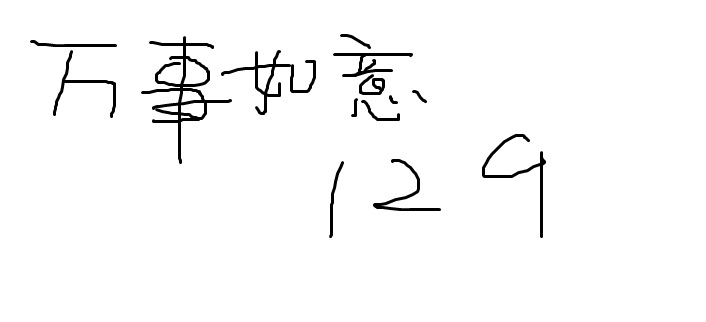 万事如意
129